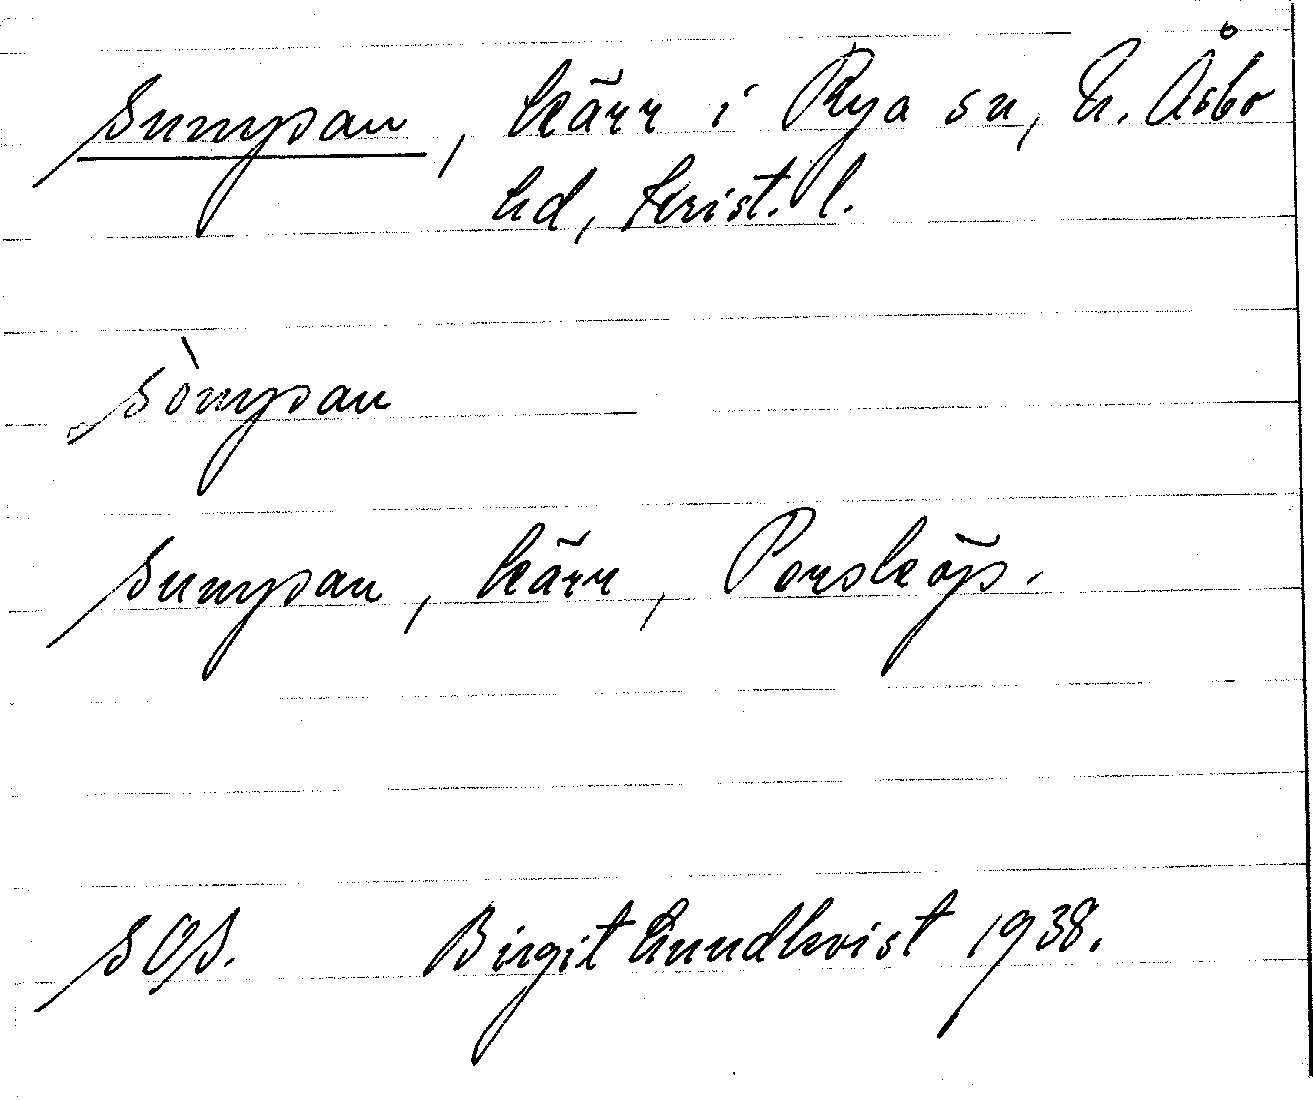 Sumpan, kärr i Rya sn, N. Åsbo
hd, Krist. l.
sòmpan
Sumpan, kärr, Porsköp.
SOS. Birgit Lundkvist 1938.